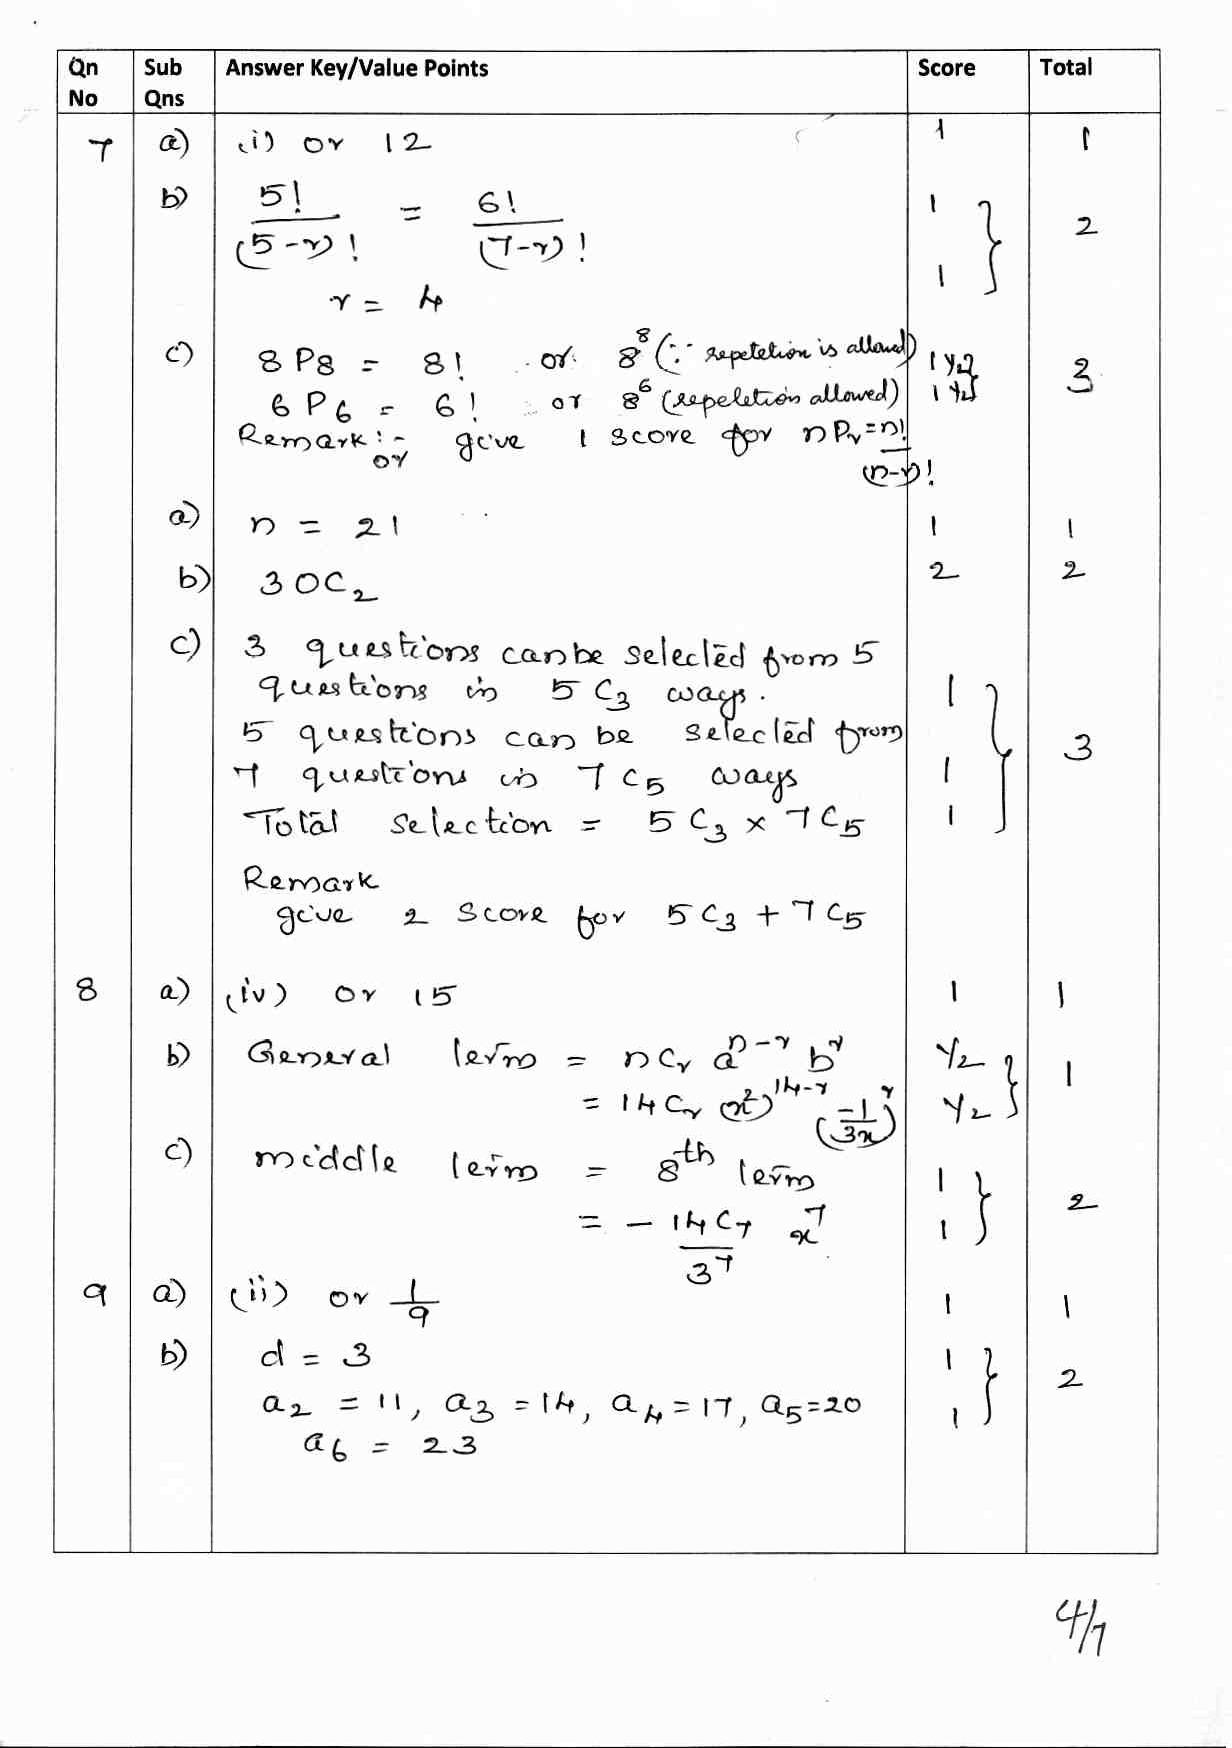 Qn No Sub Qns Answer Key/Value Points Score Total
7 a) (i) or 12 1 1
b) 5!/(5-r)! = 6!/(7-r)! 1
r = 4 1 2
c) 8P8 = 8! or 8^8 (∵ repetetion is allowed) 1 1/2
6P6 = 6! or 8^6 (repeletion allowed) 1 1/2 3
Remark:- give 1 score for nPr = n!/(n-r)!
or
a) n = 21 1 1
b) 30C2 2 2
c) 3 questions can be selected from 5
questions in 5C3 ways. 1
5 questions can be selected from
7 questions in 7C5 ways 1 3
Total selection = 5C3 × 7C5 1
Remark
give 2 score for 5C3 + 7C5
8 a) (iv) or 15 1 1
b) General term = nCr a^(n-r) b^r 1/2
= 14Cr (x^2)^(14-r) (-1/3x)^r 1/2 1
c) middle term = 8th term 1
= - 14C7/3^7 x^7 1 2
9 a) (ii) or 1/9 1 1
b) d = 3 1
a2 = 11, a3 = 14, a4 = 17, a5 = 20 1 2
a6 = 23
4/7